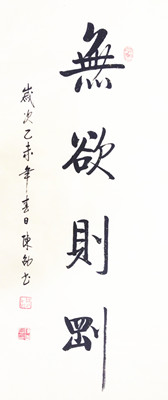 無欲則剛
歲次乙未年春日陳勛书